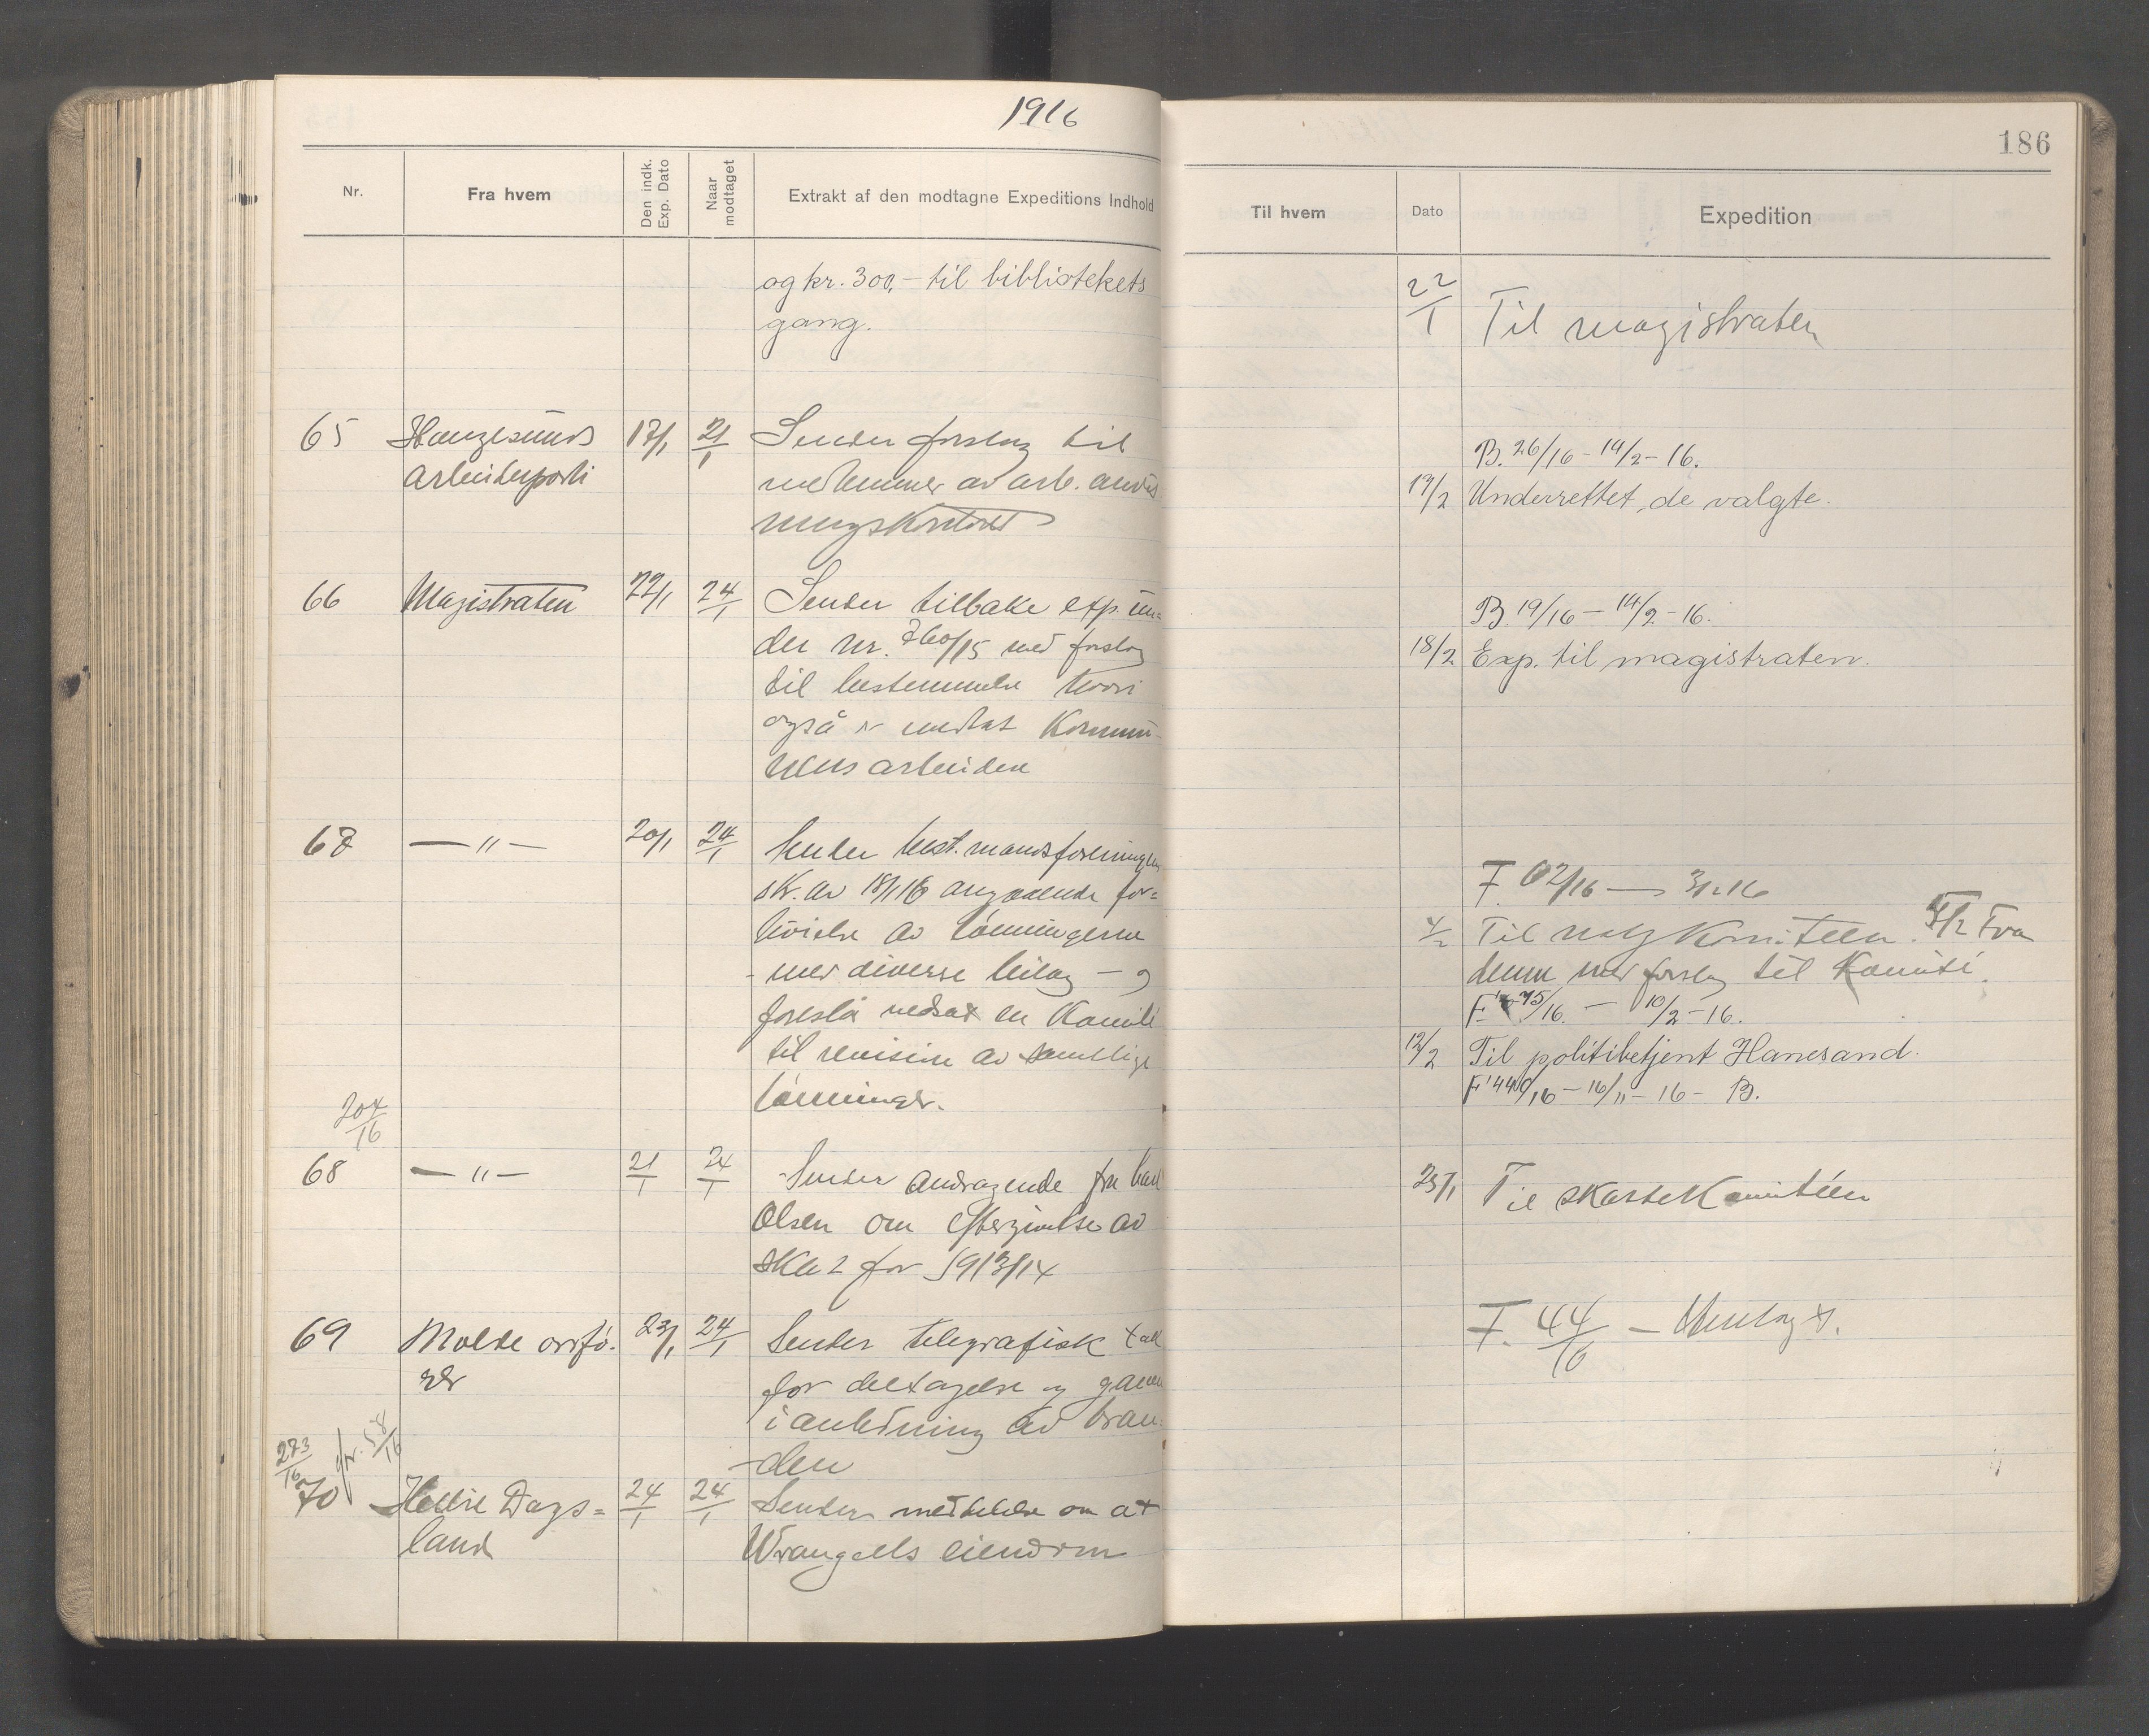 1916
Nr.
Fra hvem
Den indk. Exp. Dato
Naar modtaget
Extrakt af den modtagne Expeditions Indhold
og kr. 300,- til bibliotekets
gang.
65
Haugesunds
arbeiderparti
17/1
21/1
Sender forslag til
medlemmer av arb. anvis
ningskontoret
66
Magistraten
22/1
24/1
Sender tilbake exp. un=
der nr. 760/15 med forslag
til bestemmelse hvori
også er medtat Kommu-
nens arbeidere
67
— " —
20/1
24/1
Sender best.mandsforeningens
skr. av 18/1 16 angaaende for=
høielse av lønningerne
- med diverse bilag - og
foreslå nedsat en Komite
til revision av samtlige
lønninger.
204/16
68
— " —
21/1
24/1
Sender andragende fra Karl
Olsen om eftergivelse av
skat for 1913/14
69
Molde ordfø-
rer
23/1
24/1
Sender telegrafisk tak
for deltagelse og gaven
i anledning av bran-
-den
273/16
jfr. 58/16
70
Dags=
land
24/1
24/1
Sender meddelelse om at
Wrangells eiendom
186
Til hvem
Dato
Expedition
22/1
Til magistraten
B. 26/16 - 14/2 - 16.
19/2
Underrettet de valgte.
B. 19/16 - 14/2 - 16.
18/2
Exp. til magistraten.
F. 62/16 — 3/2 16
4/2
Til valgkomiteen. 8/2 Fra
denne med forslag til Komité.
F. 75/16. - 10/2 - 16.
12/2
Til politibetjent Hanesand.
F 440/16 - 16/11 - 16 - B.
25/1
Til skattekomitéen
F. 44/16 - Henlagt.